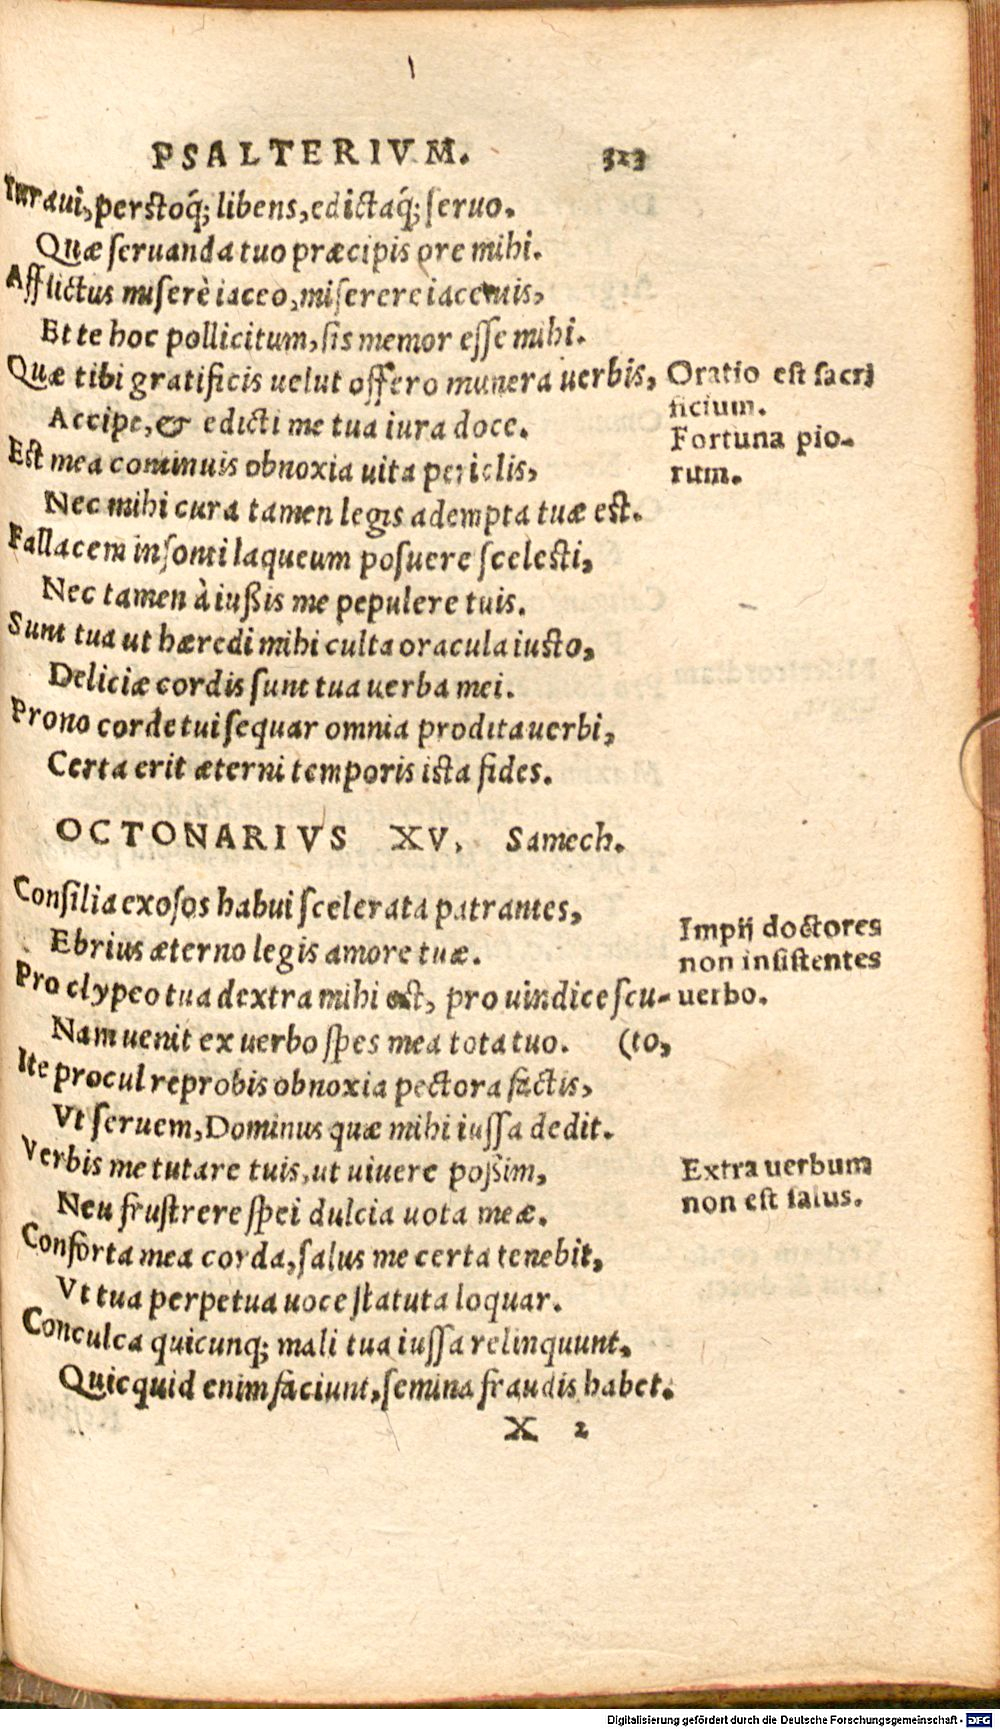 PSALTERIVM. 323
Iuraui, perstoq́; libens, edictaq́; seruo.
Quæ seruanda tuo præcipis ore mihi.
Afflictus miserè iaceo, miserere iacentis,
Et te hoc pollicitum, sis memor esse mihi.
Quæ tibi gratificis uelut offero munera uerbis,
Accipe, & edicti me tua iura doce.
Est mea continuis obnoxia uita periclis,
Nec mihi cura tamen legis adempta tuæ est.
Fallacem insonti laqueum posuere scelesti,
Nec tamen à iußis me pepulere tuis.
Sunt tua ut hæredi mihi culta oracula iusto,
Deliciæ cordis sunt tua uerba mei.
Prono corde tui sequar omnia prodita uerbi,
Certa erit æterni temporis ista fides.
Oratio est sacri
ficium.
Fortuna pio-
rum.
OCTONARIVS XV, Samech.
Consilia exosos habui scelerata patrantes,
Ebrius æterno legis amore tuæ.
Pro clypeo tua dextra mihi est, pro uindice scu-
Nam uenit ex uerbo spes mea tota tuo. (to,
Ite procul reprobis obnoxia pectora factis,
Vt seruem, Dominus quæ mihi iussa dedit.
Verbis me tutare tuis, ut uiuere poßim,
Neu frustrere spei dulcia uota meæ.
Conforta mea corda, salus me certa tenebit,
Vt tua perpetua uoce statuta loquar.
Conculca quicunq; mali tua iussa relinquunt,
Quicquid enim faciunt, semina fraudis habet.
Impij doctores
non insistentes
uerbo.
Extra uerbum
non est salus.
X 2
Digitalisierung gefördert durch die Deutsche Forschungsgemeinschaft - DFG